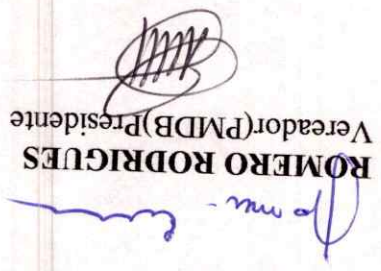 ROMERO RODRIGUES
Vereador(PMDB)Presidente